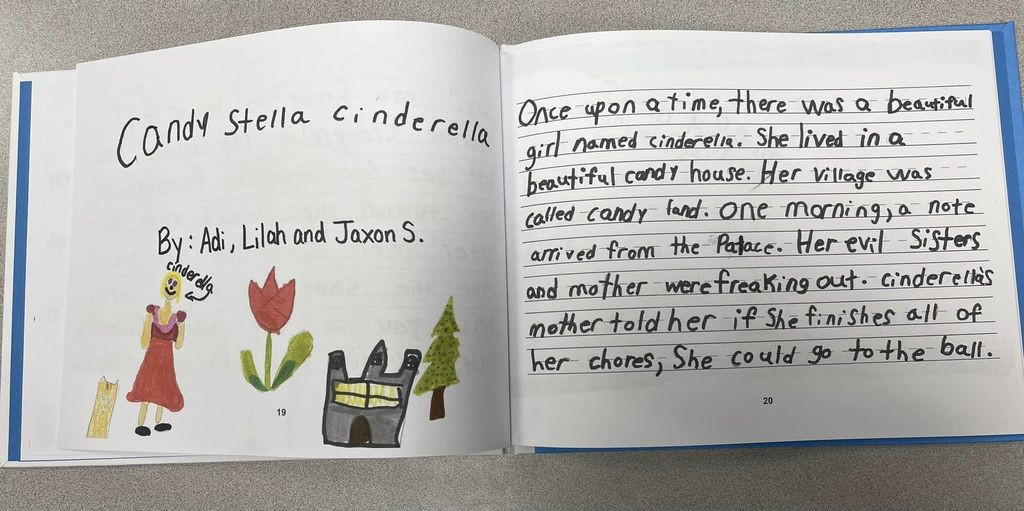 Candy Stella cinderella
By: Adi, Lilah and Jaxon S.
cinderella
19
Once upon a time, there was a beautiful
girl named cinderella. She lived in a
beautiful candy house. Her village was
called candy land. One morning, a note
arrived from the Palace. Her evil Sisters
and mother were freaking out. cinderella's
mother told her if She finishes all of
her chores, She could go to the ball.
20